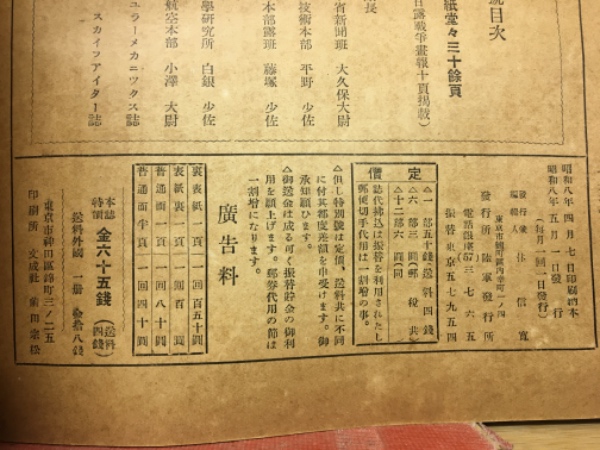 號目次
紙堂々三十餘頁
日露戰爭畫報十頁揭載)
省新聞班 大久保大尉
技術本部 平野 少佐
本部露班 藤塚 少佐
學研究所 白銀 少佐
航空本部 小澤 大尉
ュラーメカニックス誌
スカイフアイター誌
昭和八年四月七日印刷納本
昭和八年五月一日發行
(每月一回一日發行)
發行兼
編輯人
信寬
東京市麴町區內幸町一ノ四
發行所 陸軍發行所
電話銀座57三七六五
振替東京五七九五四
定價
△一部五十錢送料四錢
△六部三圓(郵稅共)
△十二部六圓(同)
誌代拂込は振替を利用されたし
郵便切手代用は一割增の事。
△但し特別號は定價、送料共に不同
に付其都度差額を申受けます。御
承知願ひます。
△御送金は成る可く振替貯金の御利
用を願上げます。郵券代用の節は
一割增になります。
廣告料
裏表紙一頁 一回百五十圓
表紙裏一頁 一回百圓
普通面一頁 一回八十圓
普通面半頁 一回四十圓
本誌特價 金六十五錢 (送料四錢)
送料外國 一册 金拾八錢
東京市神田區錦町三ノ二五
印刷所 文成社 柴田宗松